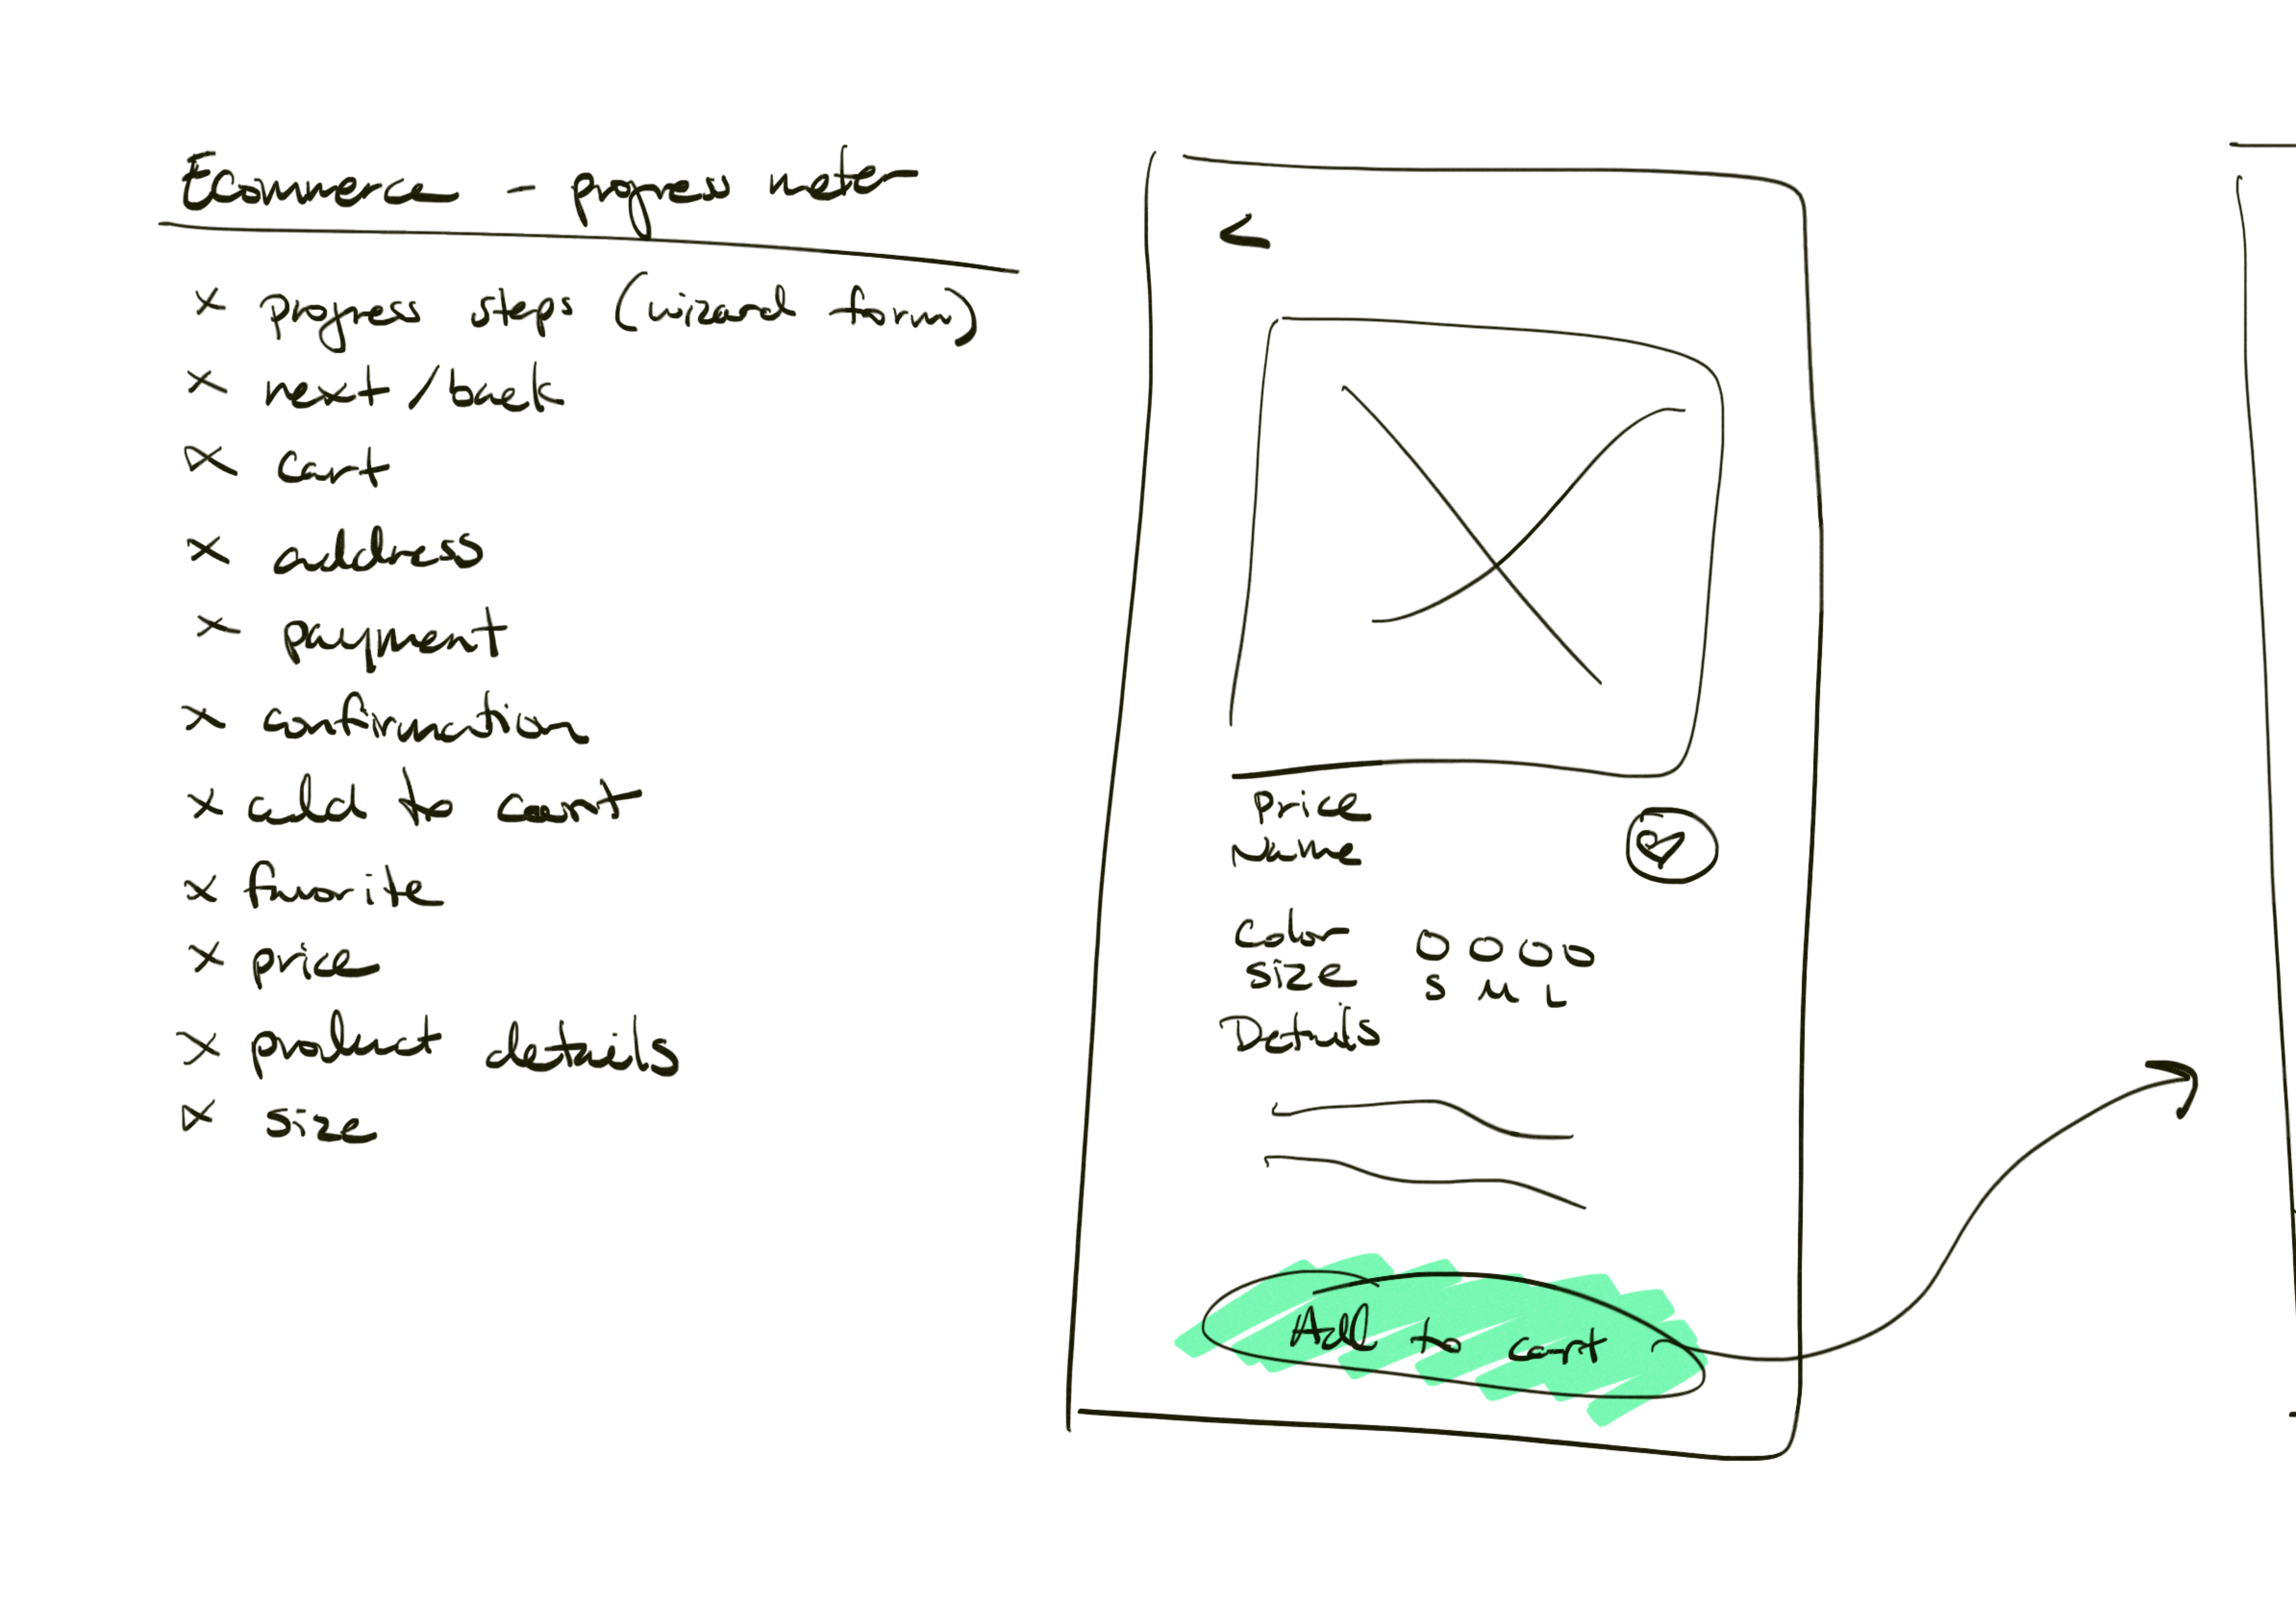 Ecommerce - progress meter
x progress steps (wizard form)
x next/back
x cart
x address
x payment
x confirmation
x add to cart
x favorite
x price
x product details
x size
<
Price
Name
Color
Size S M L
Details
Add to cart